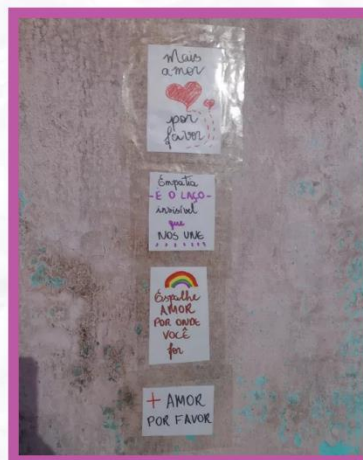 Mais
amor
por
favor
Empatia
É O LAÇO
invisível
que
NOS UNE
Espalhe
AMOR
POR ONDE
VOCÊ
for
+ AMOR
POR FAVOR